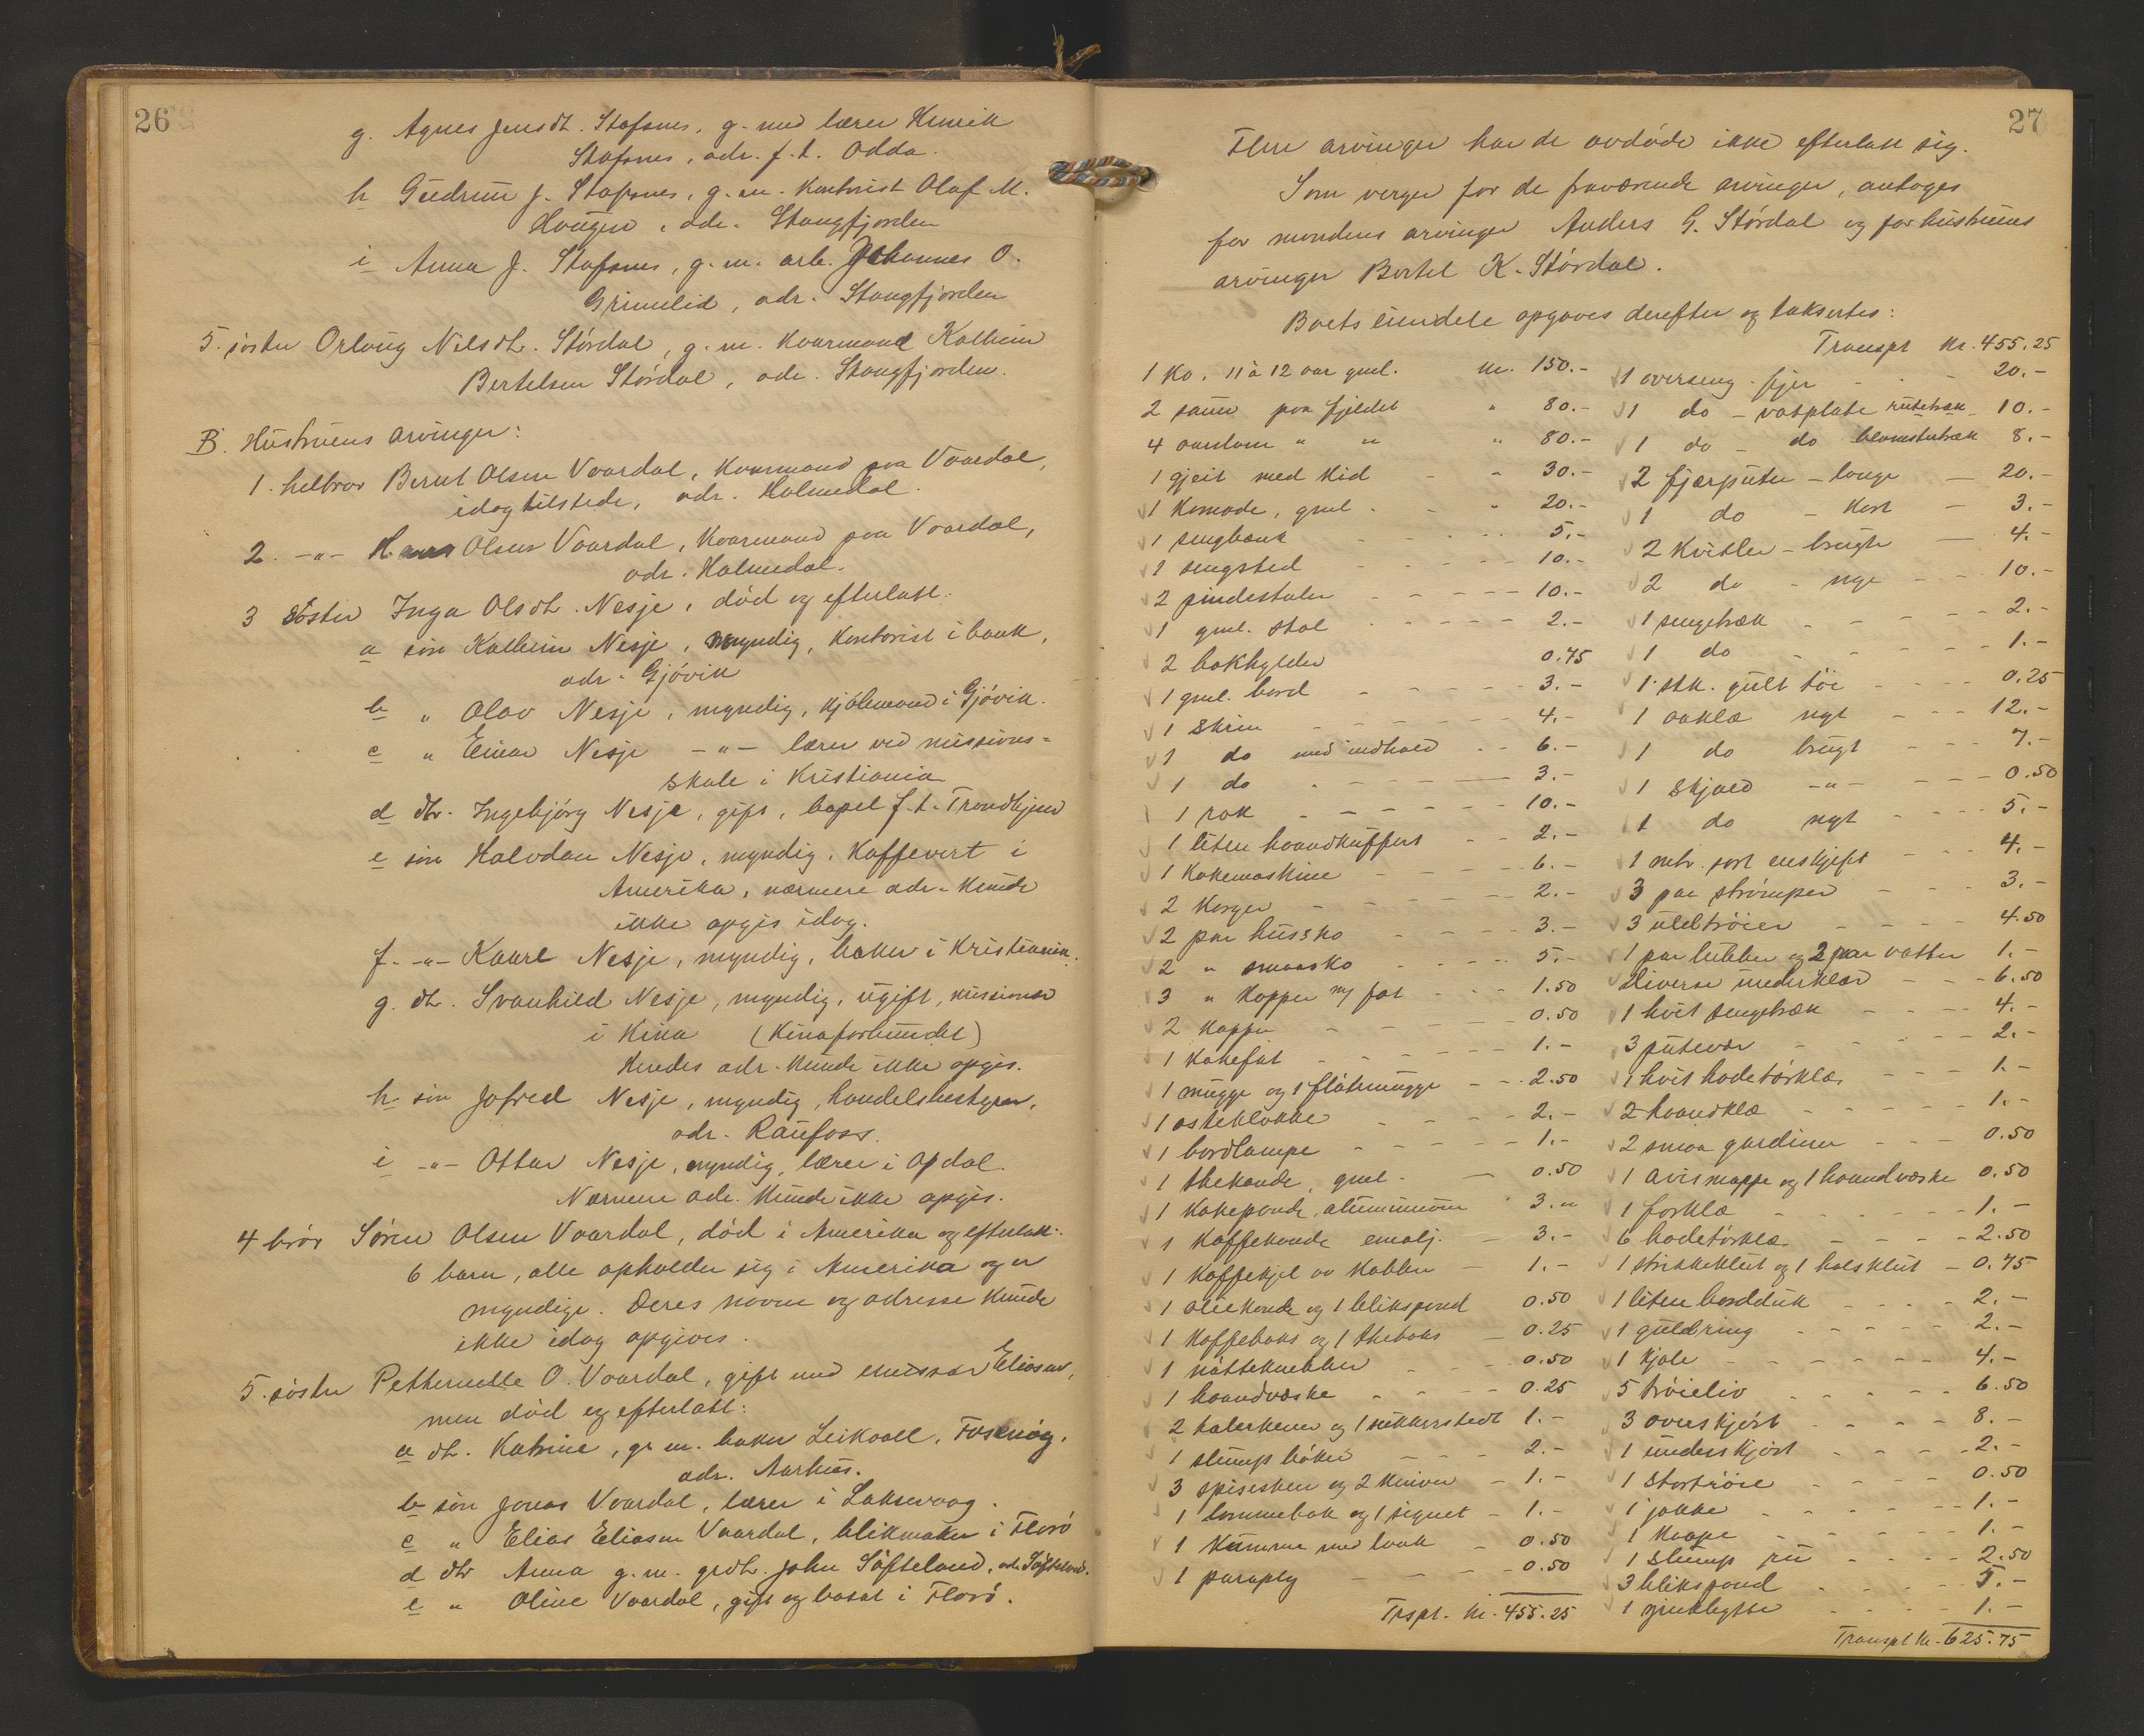 26
g. Agnes Jensdt. Stafsnes, g. med lærer Henrik
Stafsnes, adr. f.t. Odda.
h Gudrun J. Stafsnes, g.m. kontorist Olaf M.
Haugen, adr. Stangfjorden
i Anna J. Stafsnes, g.m. arb. Johannes O.
Grimelid, adr. Stangfjorden
5. søster Orlaug Nilsdt. Størdal, g.m. kaarmand Kolbein
Bertelsen Størdal, adr. Stangfjorden.
B. Hustruens arvinger:
1. helbror Bernt Olsen Vaardal, kaarmand paa Vaardal,
idag tilstede, adr. Holmedal.
2. -"- Olsen Vaardal, kaarmand paa Vaardal,
adr. Holmedal.
3 søster Inga Olsdt. Nesje, død og efterlatt:
a søn Kolbein Nesje, myndig, kontorist i bank,
adr. Gjøvik
b " Olav Nesje, myndig, kjøbmand i Gjøvik.
c " Einar Nesje -"- lærer ved missions-
skole i Kristiania
d dtr. Ingebjørg Nesje, gift, bopel f.t. Trondhjem
e søn Halvdan Nesje, myndig, kaffevert i
Amerika, nærmere adr. kunde
ikke opgis idag.
f. -"- Kaare Nesje, myndig, baker i Kristiania.
g. dt. Svanhild Nesje, myndig, ugift, missionær
i Kina (Kinaforbundet)
Hendes adr. kunde ikke opgis.
h søn Jofred Nesje, myndig, handelsbestyrer,
adr. Raufoss.
i -"- Ottar Nesje, myndig, lærer i Opdal.
Nærmere adr. kunde ikke opgis.
4 bror Søren Olsen Vaardal, død i Amerika og efterlatt:
6 barn, alle opholder sig i Amerika og er
myndige. Deres navne og adresse kunde
ikke idag opgives.
5. søster Pethernelle O. Vaardal, gift med emissær Eliasen,
men død og efterlatt:
a dt. Katrine, g.m. baker Leikvoll,
adr. Aarhus.
b søn Jonas Vaardal, lærer i Laksevaag.
c " Elias Eliasen Vaardal, blikmaker i Florø
d dtr Anna g.m. grdbr. John Søfteland, adr. Søfteland.
e " Oline Vaardal, gift og bosat i Florø.
27
Flere arvinger har de avdøde ikke efterlatt sig.
Som verger for de fraværende arvinger, antoges
for mandens arvinger Anders G. Størdal og for hustruens
arvinger Bertel K. Størdal.
Boets eiendele opgaves derefter og taksertes:
1 ko, 11 à 12 aar gml. kr. 150.-
2 sauer paa fjeldet " 80.-
4 aarslam " " " 80.-
1 gjeit med kid - " 30.-
1 komode, gml. - " 20.-
1 sengbænk 5.-
1 sengsted 10.-
2 pindestoler 10.-
1 gml. stol 2.-
2 bokhylder 0.75
1 gml. bord 3.-
1 skrin 4.-
1 do med indhold 6.-
1 do 3.-
1 rok 10.-
1 liten haandkuffert 2.-
1 kokemaskine 6.-
2 korger 2.-
2 par hussko 3.-
2 " smaasko 5.-
3 " kopper m/ fat 1.50
2 kopper 0.50
1 kakefat 1.-
1 mugge og 1 fløtemugge 2.50
1 osteklokke 2.-
1 bordlampe 1.-
1 thekande, gml. 0.50
1 kokepande, aluminium 3.-
1 kaffekande emalj. 3.-
1 kaffekjel av kobber 1.-
1 oliekande og 1 blikspand 0.50
1 kaffeboks og 1 theboks 0.25
1 nøtteknekker 0.50
1 haandvæske 0.25
2 talerkener og 1 sukkerstedt 1.-
1 slump bøker 2.-
3 spiseskeer og 2 kniver 1.-
1 lommebok og 1 signet 1.-
1 kumme med laak 0.50
1 paraply 0.50
Trspt. kr. 455.25
Transpt kr. 455.25
1 overseng fjer 20.-
1 do - vatplate rutetræk 10.-
1 do - do blomstertræk 8.-
2 fjærputer - lange 20.-
1 do - kort 3.-
2 kvitler - brugte 4.-
2 do - nye 10.-
1 sengetræk 2.-
1 do 1.-
1 stk. gult tøi 0.25
1 aaklæ nyt 12.-
1 do brugt 7.-
1 skjald -"- 0.50
1 do nyt 5.-
1 mtr. sort enskjeft 4.-
3 par strømper 3.-
3 uldtrøier 4.50
1 par lubber og 2 par vatter 1.-
Diverse underklær 6.50
1 hvit sengetræk 4.-
3 putevar 2.-
1 hvit hodetørklæ 1.-
2 haandklæ 1.-
2 smaa gardiner 0.50
1 avismappe og 1 haandvæske 0.50
1 forklæ 1.-
6 hodetørklæ 2.50
1 strikkeklut og 1 halsklut 0.75
1 liten bordduk 2.-
1 guldring 2.-
1 kjole 4.-
5 trøieliv 6.50
3 overskjørt 8.-
1 underskjørt 2.-
1 stortrøie 0.50
1 jakke 1.-
1 kaape 1.-
1 slump 2.50
3 blikspand 5.-
1 1.-
Transpt kr. 625.75